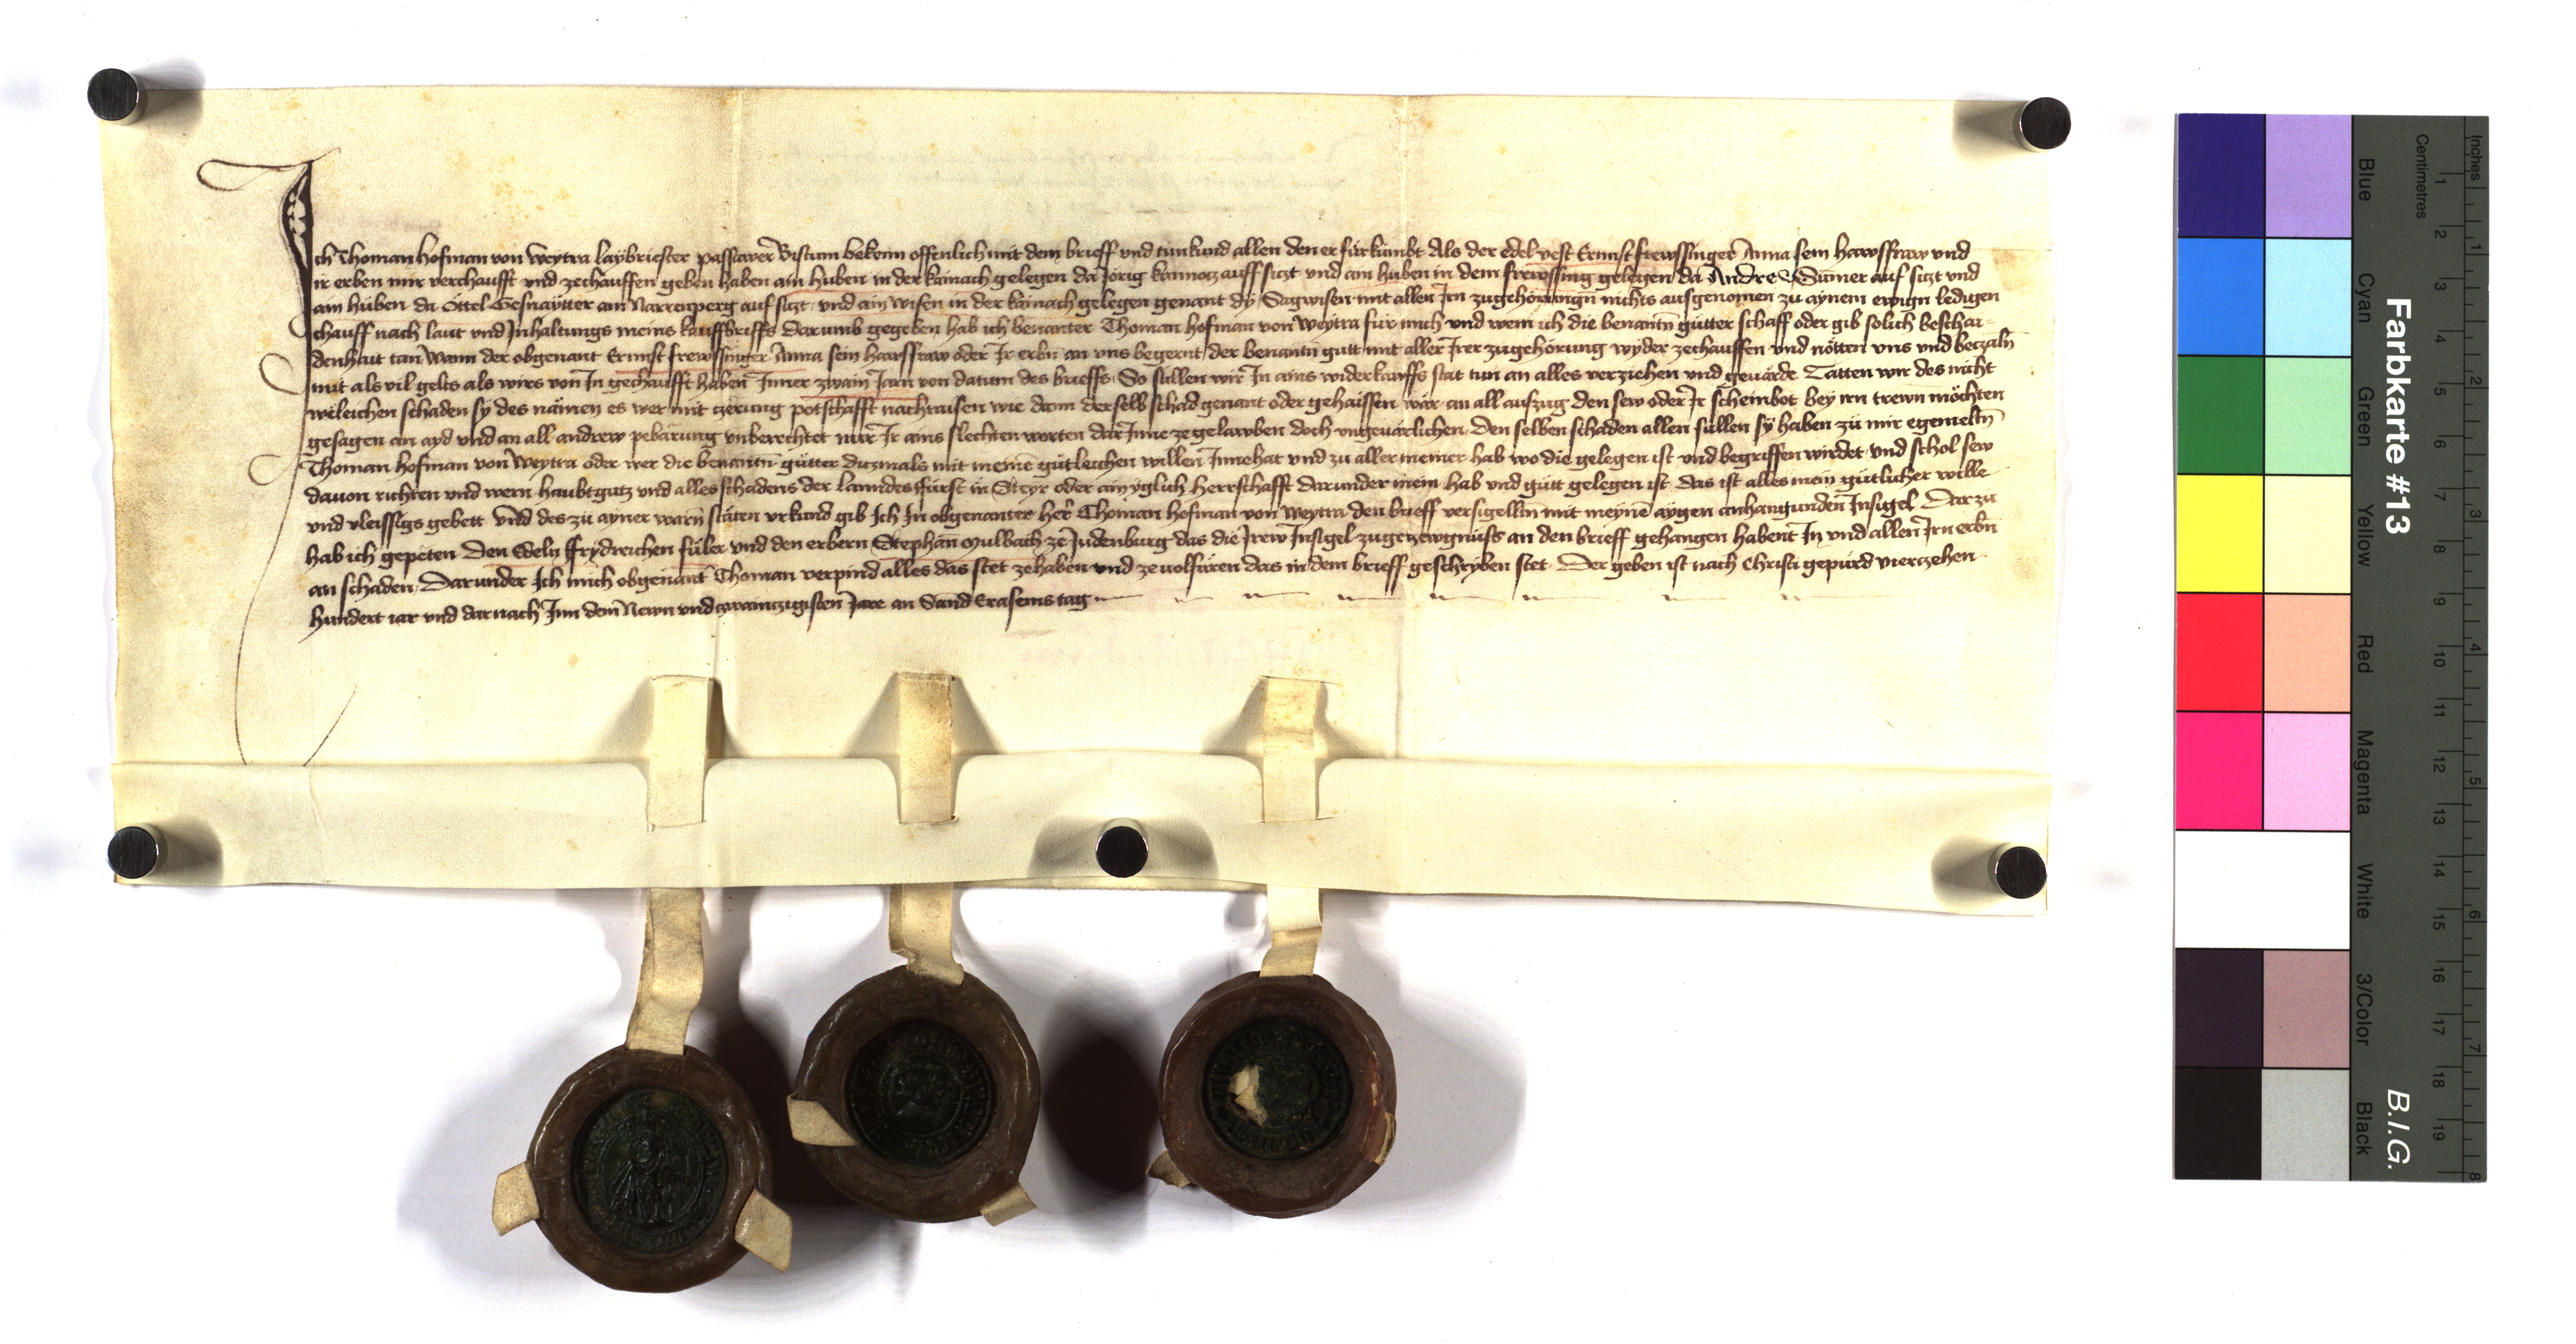 Ich Thoman Hofman von Weytra laybriester passawer Bistum bekenn offenlich mit dem brieff vnd tun kund allen den er fürkumbt Als der edel vest Ernnst frewssinger Anna sein hawsffraw vnd
ir erben mir verchaufft vnd zechauffen geben haben ain huben in der kainach gelegen da Jörig kamocz auff siczt vnd ain huben in dem frewssing gelegen da Andre Sumer auf siczt vnd
ain huben da Ottel Gesnaytter am Narrenperg auf siczt vnd ain wisen in der kainach gelegen genant dy Sagwisen mit allen Irn zugehorungn nichts ausgenomen zu aynem ewign ledigen
chauff nach laut vnd Inhaltungs meins kauffbriffs darumb gegeben hab ich benanter Thoman Hofman von Weytra für mich vnd wem ich die benantn gütter schaff oder gib solich beschai-
denhait tan Wann der obgenant Ernnst frewssinger Anna sein hawsffraw oder Ir erbn an vns begernt der benantn gutt mit aller Irer zugehörung wyder zechauffen vnd nötten vns vnd beczaln
mit als vil gelts als wirs von In gechaufft haben Inner zwain Jarn von datum des brieffs So sullen wir In ains widerkauffs stat tun an alles verziehen vnd geuärde Tätten wir des nicht
weleichen schaden sy des nämen es wer mit czerung potschafft nachraisen wie dann derselb schad genant oder gehaissen wär an all aufzug den sew oder Ir scheinbot bey irn trewn möchten
gesagen an ayd vnd an all andrew pebärung vnberechtet nur Ir ains slechten worten dar Inne ze gelawben doch vngeuärlichen Den selben schaden allen süllen sy haben zü mir egemeltn
Thoman Hofman von Weytra oder wer die benantn gütter diczmals mit meinē gütleichen willen Innehat vnd zu aller meiner hab wo die gelegen ist vnd begriffen wirdet vnd schol sew
dauon richten vnd wern haubtgutz vnd alles schadens der lanndesffürst in Steyr oder ain yglich Herrschafft darunder mein hab vnd gütt gelegen ist Das ist alles mein gütlicher wille
vnd vleissigs gebett Vnd des zu ayner warn stäten vrkund gib Ich In obgenanter her Thoman Hofman von Weytra den brieff versigelltn mit meynē aygen anhangunden Insigel Darzu
hab ich gepeten Den Edeln ffrydreichen füler vnd den erbern Stephan Mulbach ze Judenburg das die Irew Insigel zugezewgnüss an den brieff gehangen habent In vnd allen Irn erbn
an schaden Darunder Ich mich obgenant Thoman verpind alles das stet zehaben vnd ze uolfüren das in dem brieff geschryben stet Der geben ist nach Christi gepürd vierczehen
hundert iar vnd dar nach Inn dem Newn vnd zwainczigisten Jare an Sand Erasems tag
Farbkarte #13
B.I.G.
Blue
Cyan
Green
Yellow
Red
Magenta
White
3/Color
Black
Centimetres
1 2 3 4 5 6 7 8 9 10 11 12 13 14 15 16 17 18 19
Inches
1 2 3 4 5 6 7 8